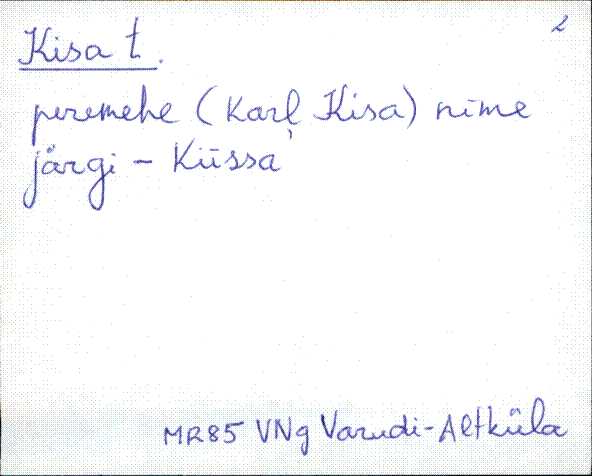 2
Kisa t.
peremehe (Karl Kisa) nime
järgi - Kiissa'
MR85 VNg Varudi-Altküla